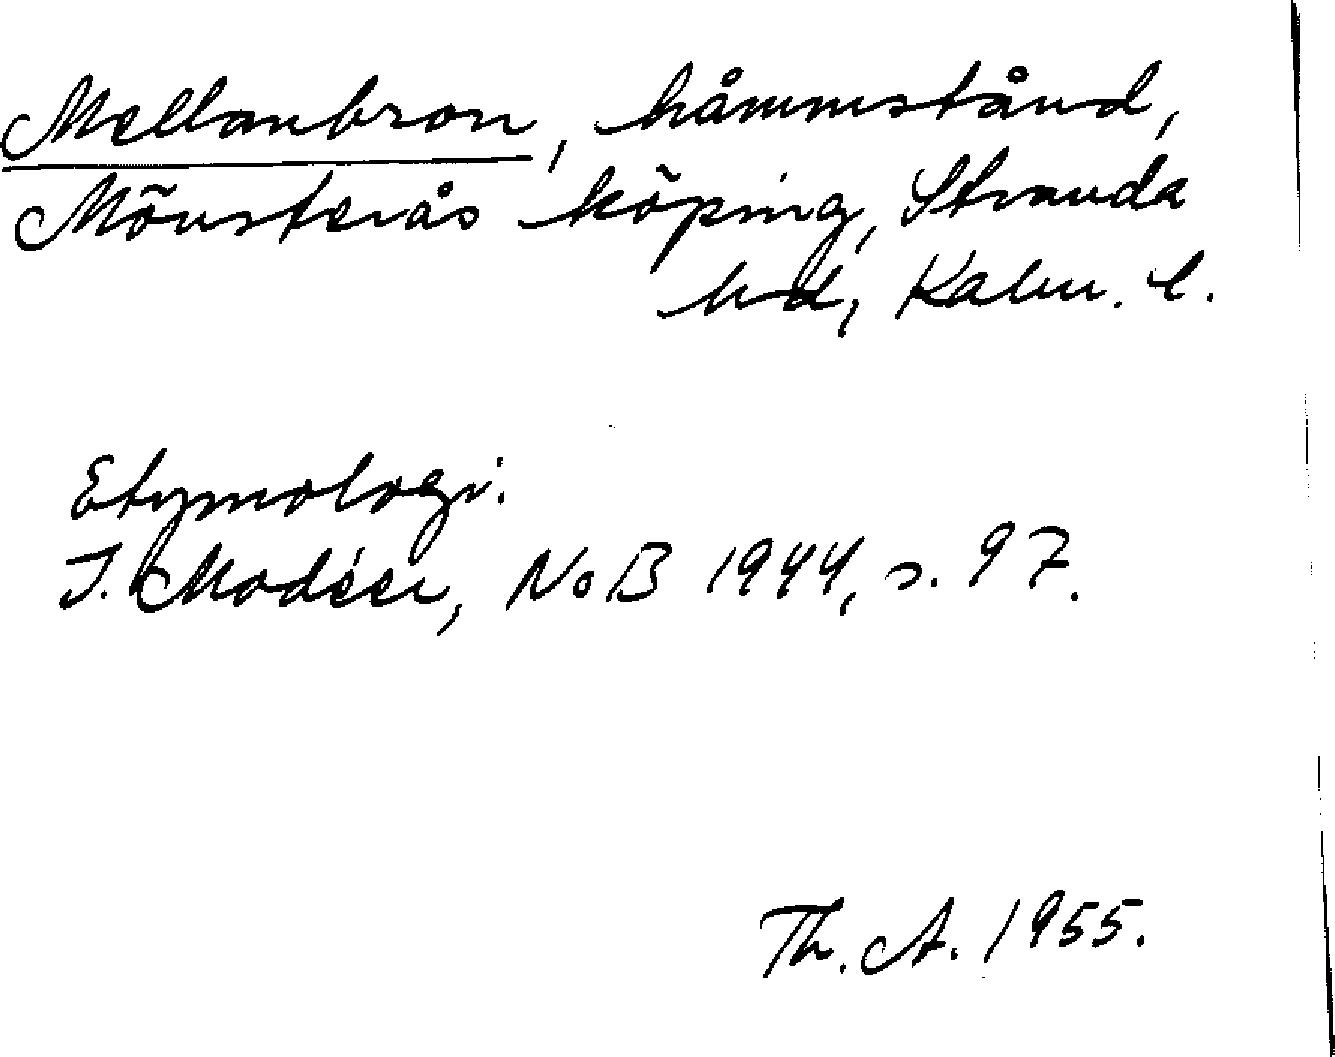 Mellanbron, håmmstånd,
Mönsterås köping, Stranda
hd, Kalm. l.
Etymologi:
I. Modéer, NoB 1944, s. 97.
Th. A. 1955.